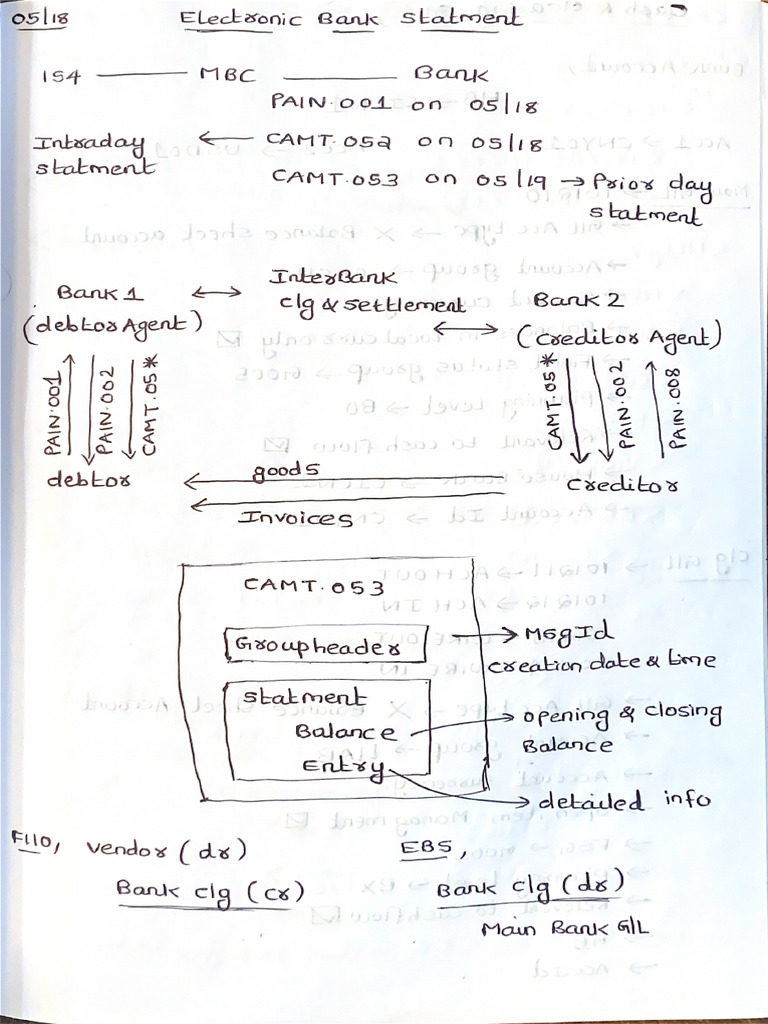 05/18 Electronic Bank Statment
1S4 ——— MBC ——— Bank
PAIN.001 on 05/18
Intraday statment ← CAMT.052 on 05/18
CAMT.053 on 05/19 → Prior day
statment
Bank 1 ↔ InterBank
clg & settlement
(debtor Agent)
↔ Bank 2
(Creditor Agent)
PAIN.001
PAIN.002
CAMT.05*
CAMT.05*
PAIN.002
PAIN.008
debtor
goods
Creditor
Invoices
CAMT.053
Groupheader → MsgId
creation date & time
statment
Balance → opening & closing
Balance
Entry → detailed info
F110, vendor (dr)
Bank clg (cr)
EBS,
Bank clg (dr)
Main Bank G/L